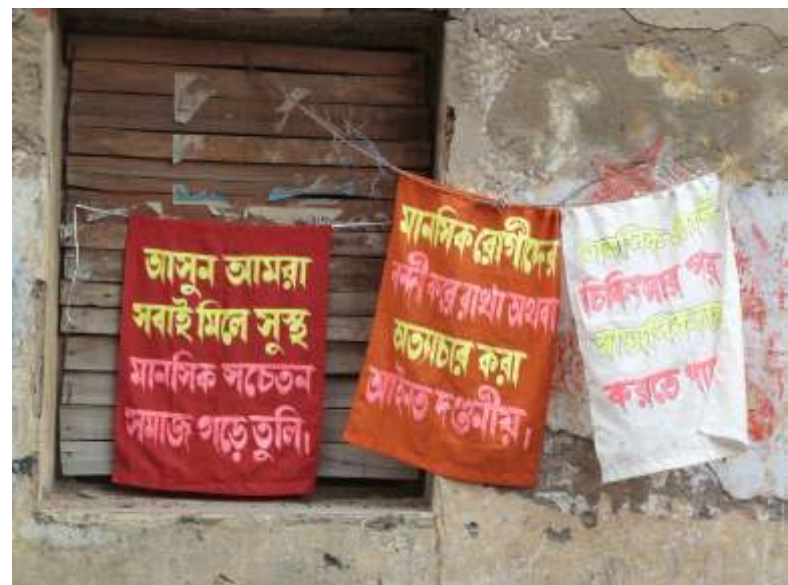 আসুন আমরা
সবাই মিলে সুস্থ
মানসিক সচেতন
সমাজ গড়ে তুলি।
মানসিক রোগীদের
বন্দী করে রাখা অথবা
অত্যাচার করা
আইনত দণ্ডনীয়।
মানসিক
চিকিৎসার পর
করতে